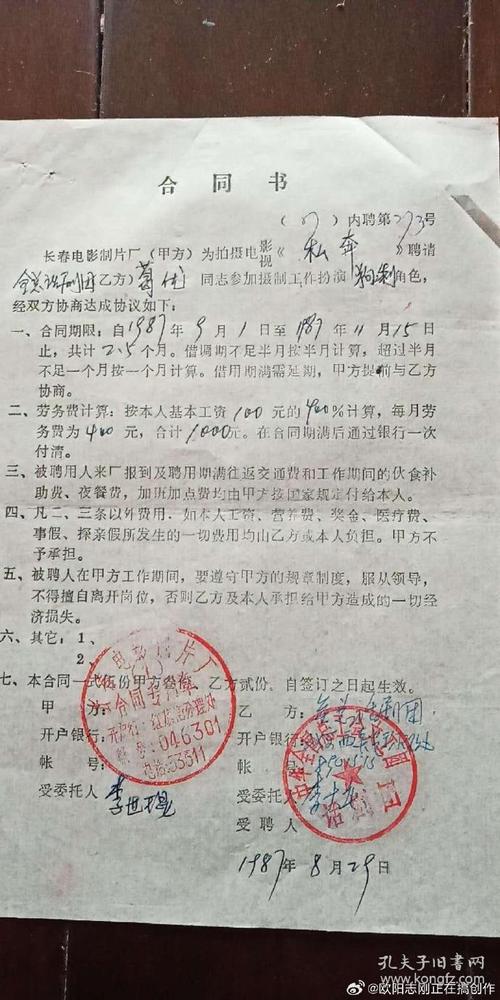 合同书
(87)内聘第273号
长春电影制片厂(甲方)为拍摄电影视《私奔》聘请
全总话剧团(乙方)葛优同志参加摄制工作扮演狗剩角色,
经双方协商达成协议如下:
一、合同期限:自1987年9月1日至1987年11月15日
止,共计2.5个月。借调期不足半月按半月计算,超过半月
不足一个月按一个月计算。借用期满需延期,甲方提前与乙方
协商。
二、劳务费计算:按本人基本工资100元的400%计算,每月劳
务费为400元,合计1000元。在合同期满后通过银行一次
付清。
三、被聘用人来厂报到及聘用期满往返交通费和工作期间的伙食补
助费、夜餐费,加班加点费均由甲方按国家规定付给本人。
四、凡二、三条以外费用,如本人工资、营养费、奖金、医疗费、
事假、探亲假所发生的一切费用均由乙方或本人负担。甲方不
予承担。
五、被聘人在甲方工作期间,要遵守甲方的规章制度,服从领导,
不得擅自离开岗位,否则乙方及本人承担给甲方造成的一切经
济损失。
六、其它:1、
2、
七、本合同一式伍份甲方叁份,乙方贰份。自签订之日起生效。
甲方:
开户银行:
帐号:
受委托人 李世琨
电影制片厂
合同专用章
046301
电话:53311
乙方:全总话剧团
开户银行:
帐号:
受委托人
受聘人
话剧团
1987年8月29日
孔夫子旧书网
@欧阳志刚正在搞创作